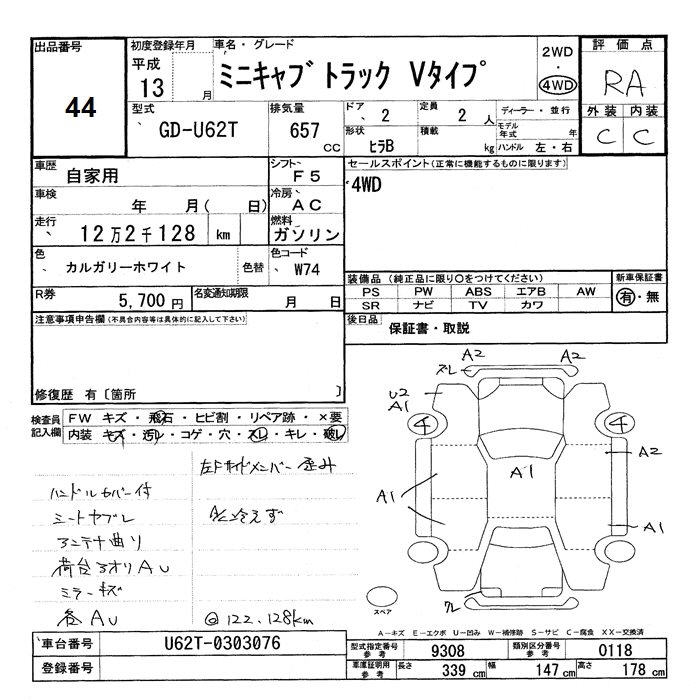 出品番号
44
初度登録年月
平成
13 月
車名・グレード
ミニキャブ トラック Vタイプ
2WD
・
4WD
評価点
RA
外装 内装
C C
型式
GD-U62T
排気量
657 CC
ドア
2
定員
2 人
形状
ヒラB
積載
kg
ディーラー・並行
モデル年式 年
ハンドル 左・右
車歴
自家用
シフト
F5
車検
年 月( 日)
冷房
AC
走行
12万2千128 km
燃料
ガソリン
色
カルガリーホワイト
色替
色コード
W74
R券
5,700円
名変通知期限
月 日
セールスポイント(正常に機能するものに限ります)
4WD
装備品(純正品に限り○をつけてください)
PS PW ABS エアB AW
SR ナビ TV カワ
新車保証書
有・無
後日品
保証書・取説
注意事項申告欄(不具合内容等は具体的に記入して下さい)
修復歴 有〔箇所 〕
検査員記入欄
FW キズ・飛石・ヒビ割・リペア跡・×要
内装 キズ・汚レ・コゲ・穴・スレ・キレ・破レ
左Fサイドメンバー 歪み
ハンドルカバー付
シートヤブレ
A/C冷えず
アンテナ曲り
荷台アオリAU
ミラーキズ
各AU
@ 122,128km
A2 A2
ズレ
U2
A1
4 4
A2
A1
A1
A1
スペア
A-キズ E-エクボ U-凹み W-補修跡 S-サビ C-腐食 XX-交換済
車台番号
U62T-0303076
登録番号
型式指定番号
参考
9308
類別区分番号
参考
0118
車庫証明用
参考
長さ 339 cm 幅 147 cm 高さ 178 cm